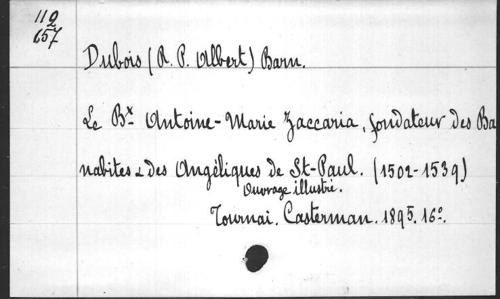 112
657
Dubois (R. P. Albert) Barn.
Le Bx Antoine-Marie Zaccaria, fondateur des Ba
nabites & des Angéliques de St-Paul. (1502-1539)
Ouvrage illustré.
Tournai. Casterman. 1895. 16º.